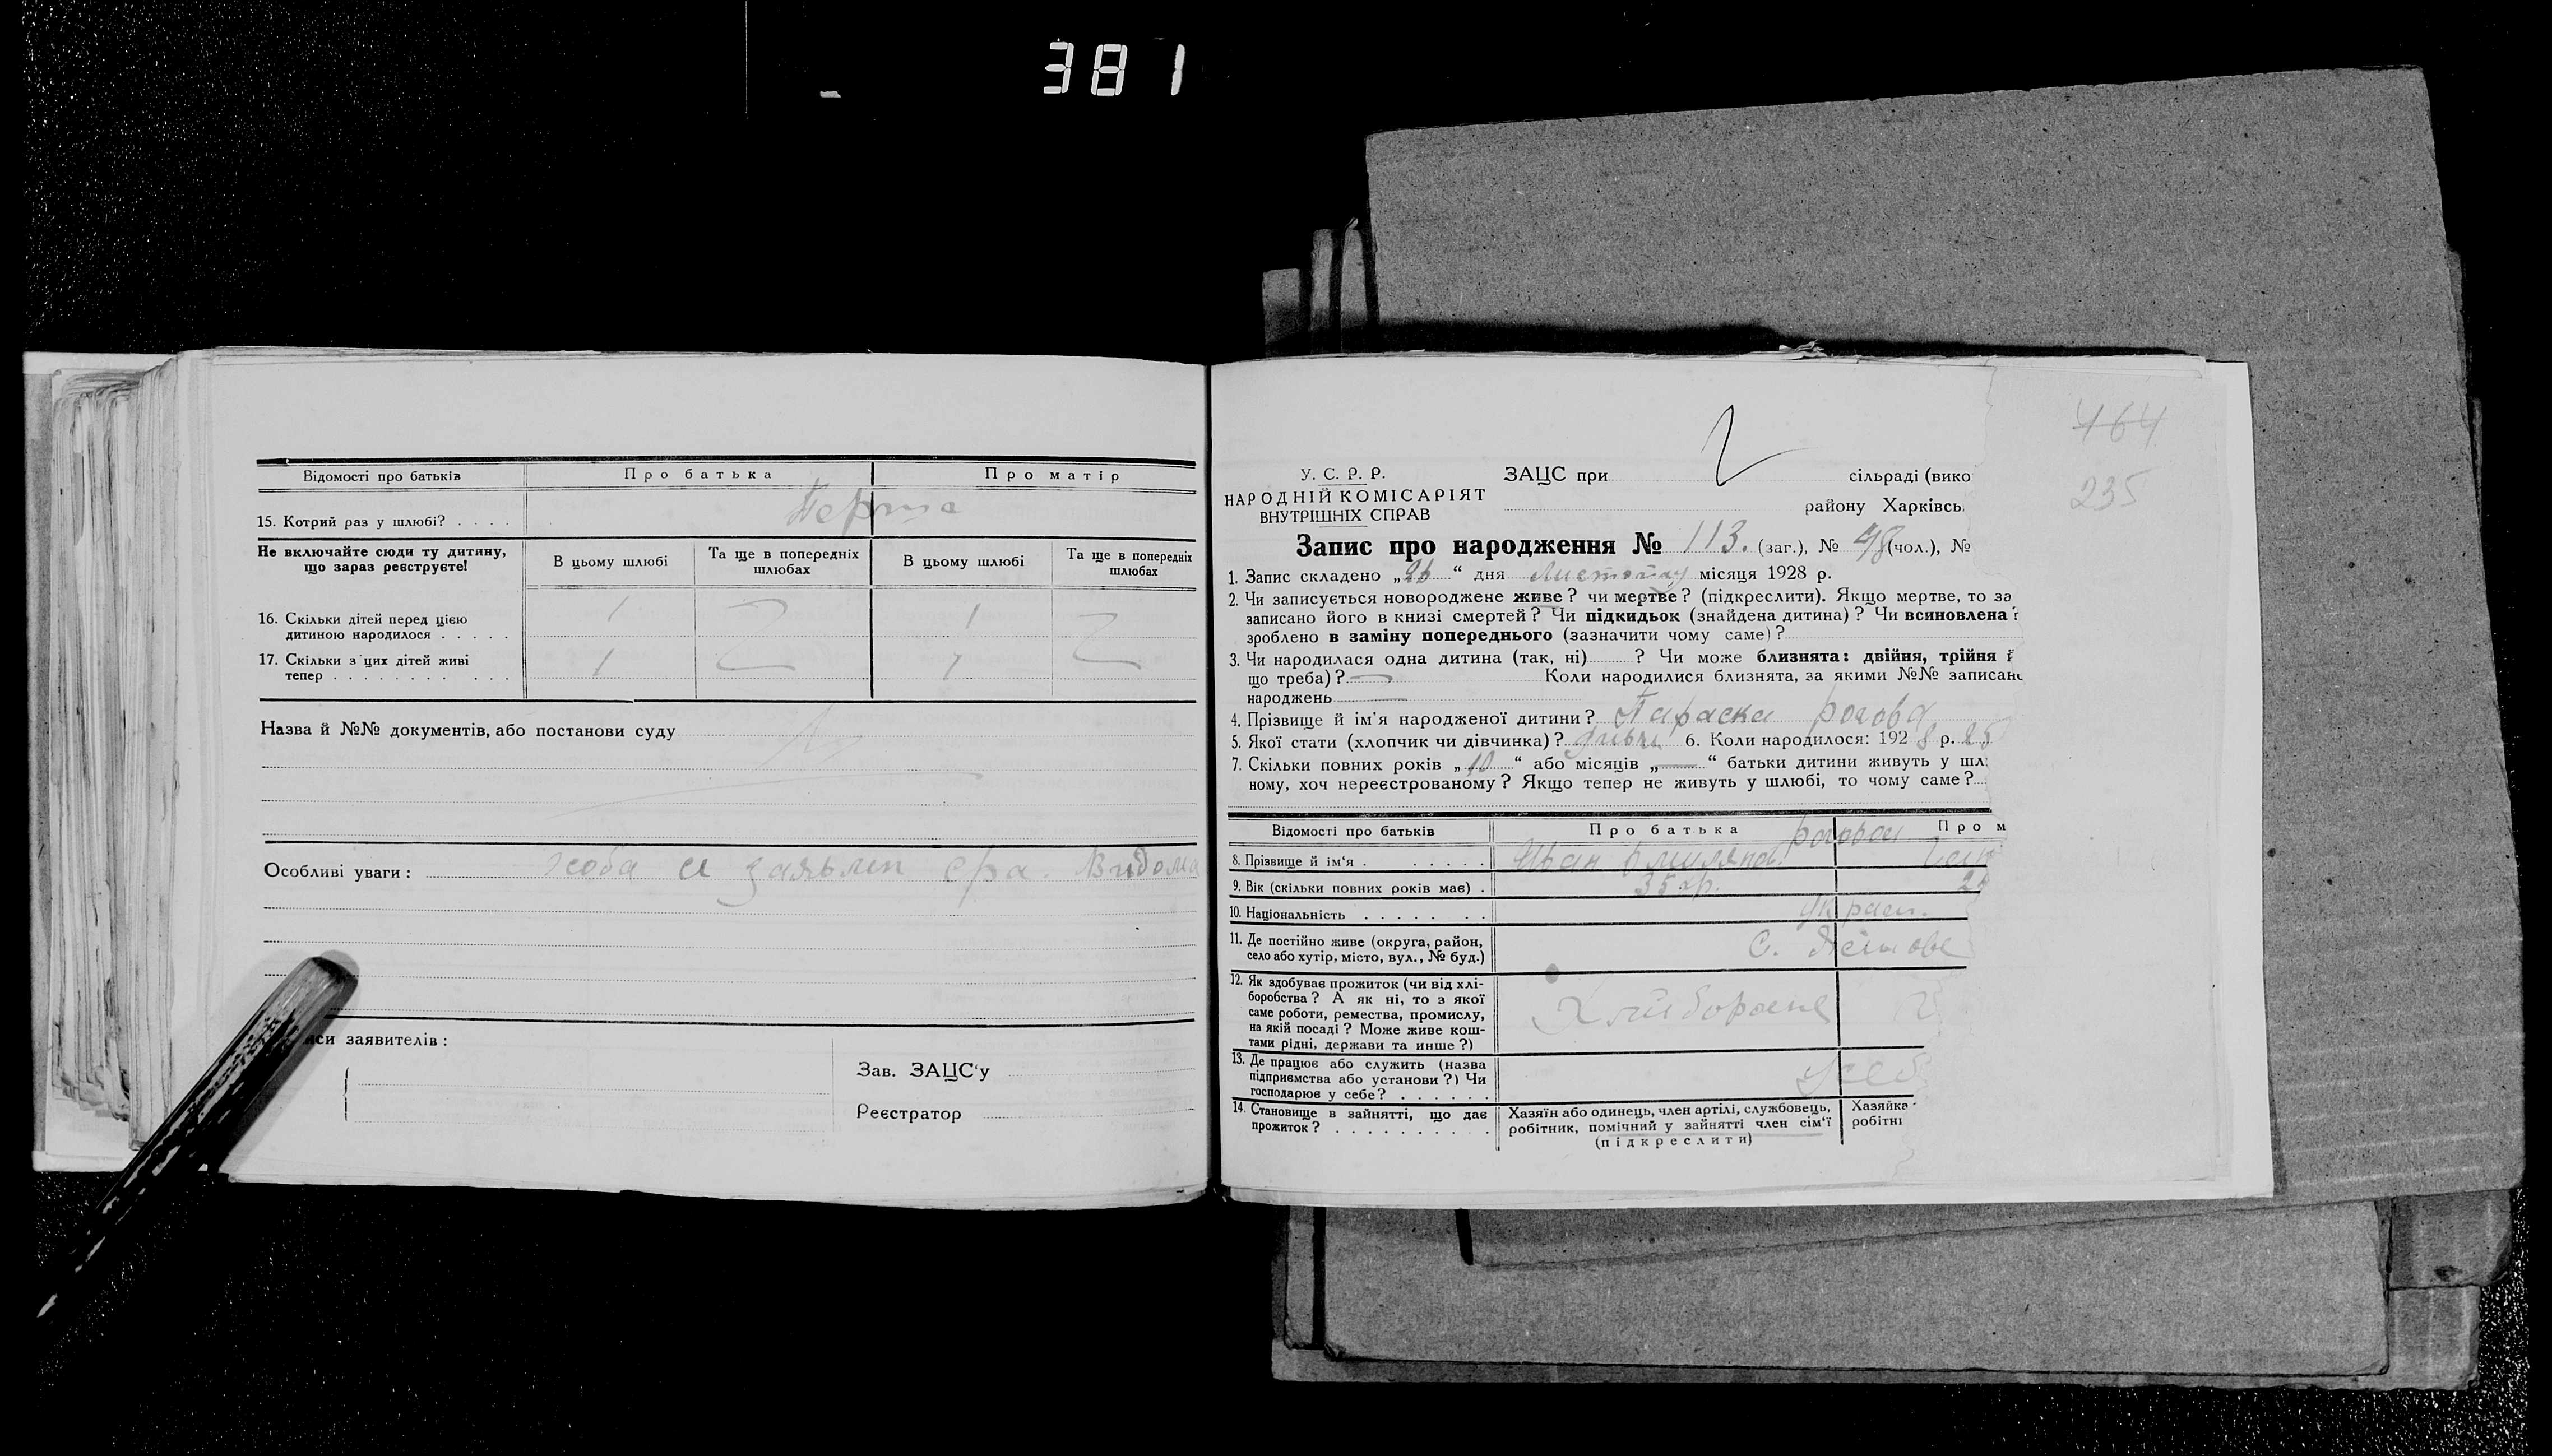 381
Відомості про батьків
Про батька
Про матір
15. Котрий раз у шлюбі? . . . .
Перша
Не включайте сюди ту дитину,
що зараз реєструєте!
В цьому шлюбі
Та ще в попередніх
шлюбах
В цьому шлюбі
Та ще в попередніх
шлюбах
16. Скільки дітей перед цією
дитиною народилося . . . . .
1
1
17. Скільки з цих дітей живі
тепер . . . . . . . . . . .
1
1
Назва й №№ документів, або постанови суду
Особливі уваги: особа заявлен Видома
заявителів:
Зав. ЗАЦС'у
Реєстратор
464
235
У. С. Р. Р.
НАРОДНІЙ КОМІСАРІЯТ
ВНУТРІШНІХ СПРАВ
ЗАЦС при
сільраді (вико
району Харківсь
Запис про народження № 113. (заг.), № 48 (чол.), №
1. Запис складено „26“ дня Листопаду місяця 1928 р.
2. Чи записується новороджене живе? чи мертве? (підкреслити). Якщо мертве, то за
записано його в книзі смертей? Чи підкидьок (знайдена дитина)? Чи всиновлена
зроблено в заміну попереднього (зазначити чому саме)?
3. Чи народилася одна дитина (так, ні) ? Чи може близнята: двійня, трійня
що треба)? Коли народилися близнята, за якими №№ записан
народжень
4. Прізвище й ім'я народженої дитини? Параска Рогова
5. Якої стати (хлопчик чи дівчинка)? дівч. 6. Коли народилося: 1928 р. 25
7. Скільки повних років „10“ або місяців „—“ батьки дитини живуть у шл
ному, хоч нереєстрованому? Якщо тепер не живуть у шлюбі, то чому саме?
Відомості про батьків
Про батька
Про м
8. Прізвище й ім'я . . . . . .
Рогової
Иван
9. Вік (скільки повних років має) .
35 р.
10. Національність . . . . . . .
Украєн.
11. Де постійно живе (округа, район,
село або хутір, місто, вул., № буд.)
С.
12. Як здобуває прожиток (чи від хлі-
боробства? А як ні, то з якої
саме роботи, ремества, промислу,
на якій посаді? Може живе кош-
тами рідні, держави та инше?)
13. Де працює або служить (назва
підприємства або установи?) Чи
господарює у себе? . . . . . .
14. Становище в зайнятті, що дає
прожиток? . . . . . . . . . .
Хазяїн або одинець, член артілі, службовець,
робітник, помічний у зайнятті член сім'ї
(підкреслити)
Хазяйка
робітн